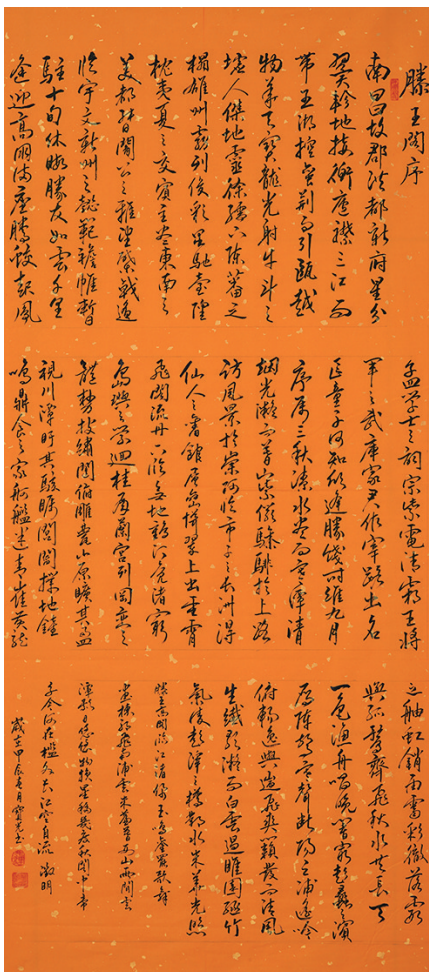 滕王閣序
南昌故郡洪都新府星分
翼軫地接衡廬襟三江而
帶五湖控蠻荊而引甌越
物華天寶龍光射牛斗之
墟人傑地靈徐孺下陳蕃之
榻雄州霧列俊彩星馳臺隍
枕夷夏之交賓主盡東南之
美都督閻公之雅望棨戟遙
臨宇文新州之懿範襜帷暫
駐十旬休暇勝友如雲千里
逢迎高朋滿座騰蛟起鳳
孟學士之詞宗紫電清霜王將
軍之武庫家君作宰路出名
區童子何知躬逢勝餞時維九月
序屬三秋潦水盡而寒潭清
煙光凝而暮山紫儼驂騑於上路
訪風景於崇阿臨帝子之長洲得
仙人之舊館層巒聳翠上出重霄
飛閣流丹下臨無地鶴汀鳧渚窮
島嶼之縈迴桂殿蘭宮列岡巒之
體勢披繡闥俯雕甍山原曠其盈
視川澤盱其駭矚閭閻撲地鐘
鳴鼎食之家舸艦迷津青雀黃龍
之舳虹銷雨霽彩徹落霞
與孤鶩齊飛秋水共長天
一色漁舟唱晚響窮彭蠡之濱
雁陣驚寒聲斷之浦遙吟
俯暢逸興遄飛爽籟發而清風
生纖歌凝而白雲遏睢園綠竹
氣凌彭澤之樽鄴水朱華光照
滕王高閣臨江渚佩玉鳴鸞罷歌舞
畫棟朝飛南浦雲朱簾暮捲西山雨閒雲
潭影日悠悠物換星移幾度秋閣中帝
子今何在檻外長江空自流 明
歲在甲辰七月寶光書